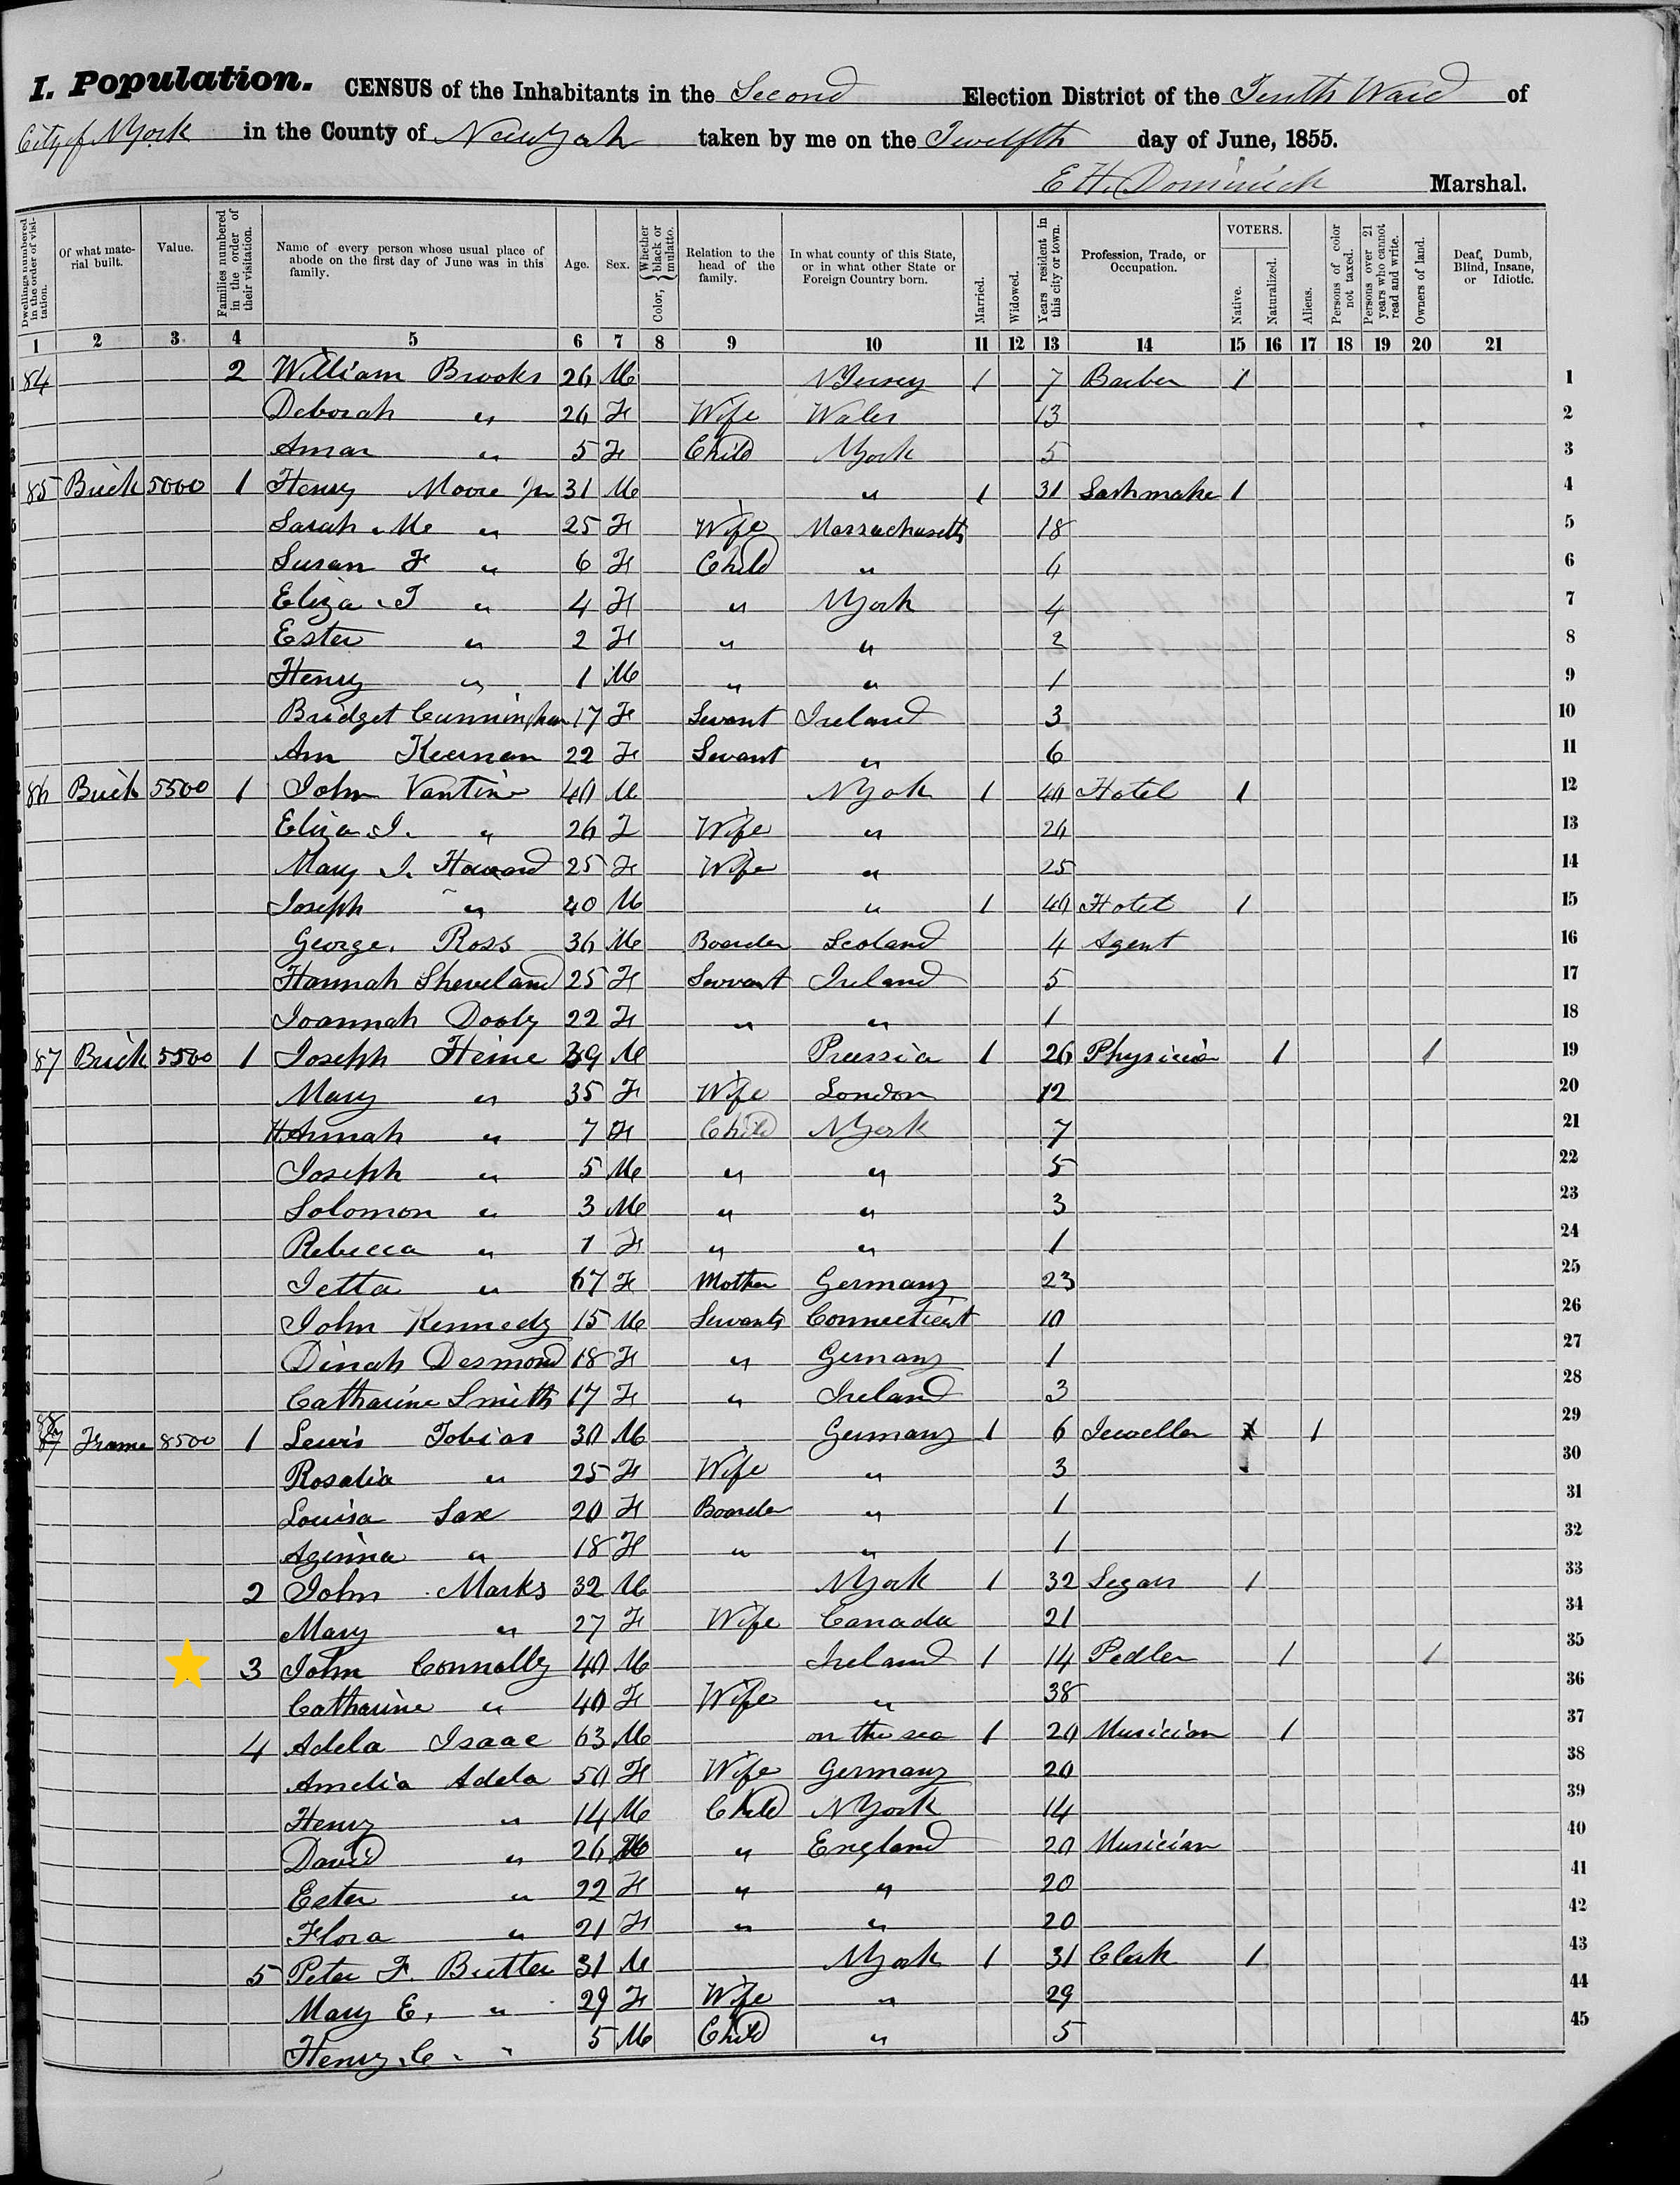 I. Population. CENSUS of the Inhabitants in the Second Election District of the Tenth Ward of
City of N York in the County of New York taken by me on the Twelfth day of June, 1855.
E H. Dominick Marshal.
Dwellings numbered in the order of visitation. Of what material built. Value. Families numbered in the order of their visitation. Name of every person whose usual place of abode on the first day of June was in this family. Age. Sex. Color, Whether black or mulatto. Relation to the head of the family. In what county of this State, or in what other State or Foreign Country born. Married. Widowed. Years resident in this city or town. Profession, Trade, or Occupation. VOTERS. Native. Naturalized. Aliens. Persons of color not taxed. Persons over 21 years who cannot read and write. Owners of land. Deaf, Dumb, Blind, Insane, or Idiotic.
1 2 3 4 5 6 7 8 9 10 11 12 13 14 15 16 17 18 19 20 21
84 2 William Brooks 26 M N Jersey 1 7 Barber 1 1
Deborah " 26 F Wife Wales 13 2
Amar " 5 F Child N York 5 3
85 Brick 5000 1 Henry Moore Jr 31 M " 1 31 Sashmake 1 4
Sarah M " 25 F Wife Massachusetts 18 5
Susan F " 6 F Child " 4 6
Eliza J " 4 F " N York 4 7
Ester " 2 F " " 2 8
Henry " 1 M " " 1 9
Bridget Cunningham 17 F Servant Ireland 3 10
Ann Keernan 22 F Servant " 6 11
86 Brick 5500 1 John Vantine 40 M N York 1 40 Hotel 1 12
Eliza J. " 26 F Wife " 26 13
Mary J. Howard 25 F Wife " 25 14
Joseph " 40 M " 1 40 Hotel 1 15
George. Ross 36 M Boarder Scoland 4 Agent 16
Hannah Sheveland 25 F Servant Ireland 5 17
Joannah Dooly 22 F " " 1 18
87 Brick 5500 1 Joseph Heine 39 M Prussia 1 26 Physician 1 1 19
Mary " 35 F Wife London 12 20
Hannah " 7 F Child N York 7 21
Joseph " 5 M " " 5 22
Solomon " 3 M " " 3 23
Rebecca " 1 F " " 1 24
Jetta " 67 F Mother Germany 23 25
John Kennedy 15 M Servants Connecticut 10 26
Dinah Desmond 18 F " Germany 1 27
Catharine Smith 17 F " Ireland 3 28
88 87 Frame 8500 1 Lewis Tobias 30 M Germany 1 6 Jeweller 1 29
Rosalia " 25 F Wife " 3 30
Louisa Sax 20 F Boarder " 1 31
" 18 F " " 1 32
2 John Marks 32 M N York 1 32 Segars 1 33
Mary " 27 F Wife Canada 21 34
3 John Connolly 40 M Ireland 1 14 Pedler 1 1 35
Catharine " 40 F Wife " 38 36
4 Adela Isaac 63 M on the sea 1 20 Musician 1 37
Amelia Adela 50 F Wife Germany 20 38
Henry " 14 M Child N York 14 39
David " 26 M " England 20 Musician 40
Ester " 22 F " " 20 41
Flora " 21 F " " 20 42
5 Peter F. Butter 31 M N York 1 31 Clerk 1 43
Mary E. " 29 F Wife " 29 44
Henry C. " 5 M Child " 5 45